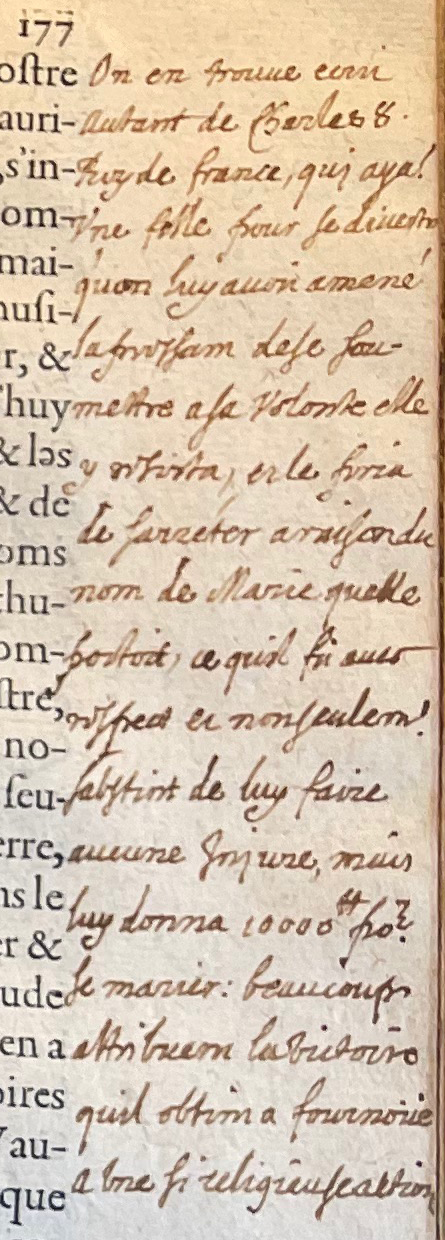 177
ostre
auri-
s'in-
om-
mai-
nusi-
r, &
'huy
& les
& de
oms
thu-
om-
stre,
no-
seu-
erre,
ns le
er &
ude
en a
oires
'au-
que
On en trouue ecrit
autant de Charles 8.
Roy de france, qui aya.t
Vne fille pour se divertir
quon luy auoit amené
la pressant de se sou-
mettre a sa Volonte elle
y resista, et le pria
de sarreter a raison du
nom de Marie quelle
portoit, ce quil fit auec
respect et non seulem.t
sabstint de luy faire
aucune Injure, mais
luy donna 10000 ℔ po.r
se marier: beaucoup
attribuent la victoire
quil obtint a fournoüe
a Vne si religieuse action